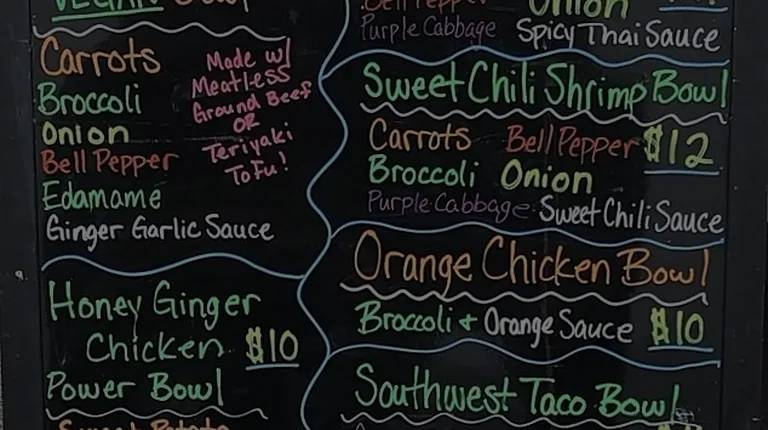 VEGAN Bowl
Carrots
Broccoli
Onion
Bell Pepper
Edamame
Ginger Garlic Sauce
Made w/
Meatless
Ground Beef
OR
Teriyaki
Tofu!
Honey Ginger
Chicken $10
Power Bowl
Sweet Potato
Bell Pepper Onion
Purple Cabbage Spicy Thai Sauce
Sweet Chili Shrimp Bowl
Carrots Bell Pepper $12
Broccoli Onion
Purple Cabbage Sweet Chili Sauce
Orange Chicken Bowl
Broccoli + Orange Sauce $10
Southwest Taco Bowl